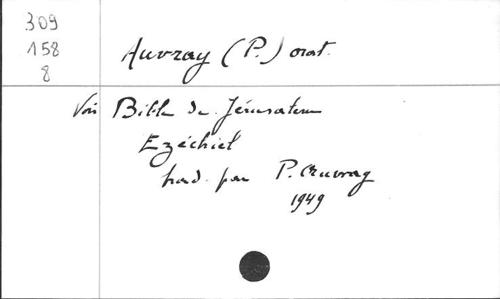 309
158
8
Auvray (P.) orat.
Voir Bible de Jérusalem
Ezéchiel
trad. par P. Auvray
1949